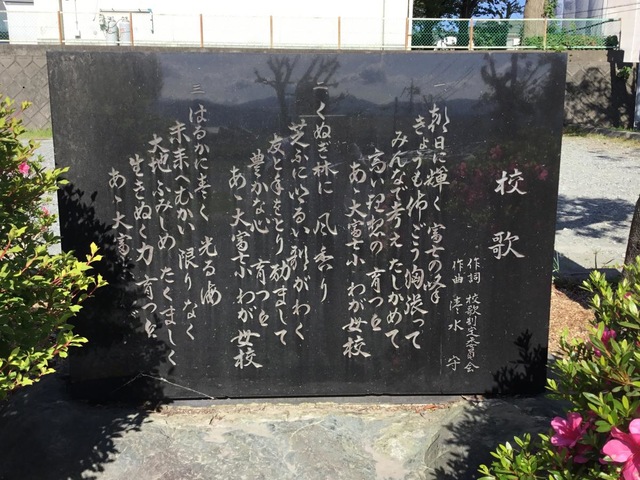 校歌
作詞 校歌制定委員会
作曲 清水 守
一 朝日に輝く富士の峰
きょうも仰ごう胸張って
みんなで考えたしかめて
高い理想の育つと
あゝ大富士小わが母校
二 くぬぎ林に 風香り
芝ふにいこい
友と手をとり励まして
豊かな心 育つと
あゝ大富士小わが母校
三 はるかに青く 光る海
未来へむかい 限りなく
大地ふみしめ たくましく
生きぬく力 育つと
あゝ大富士